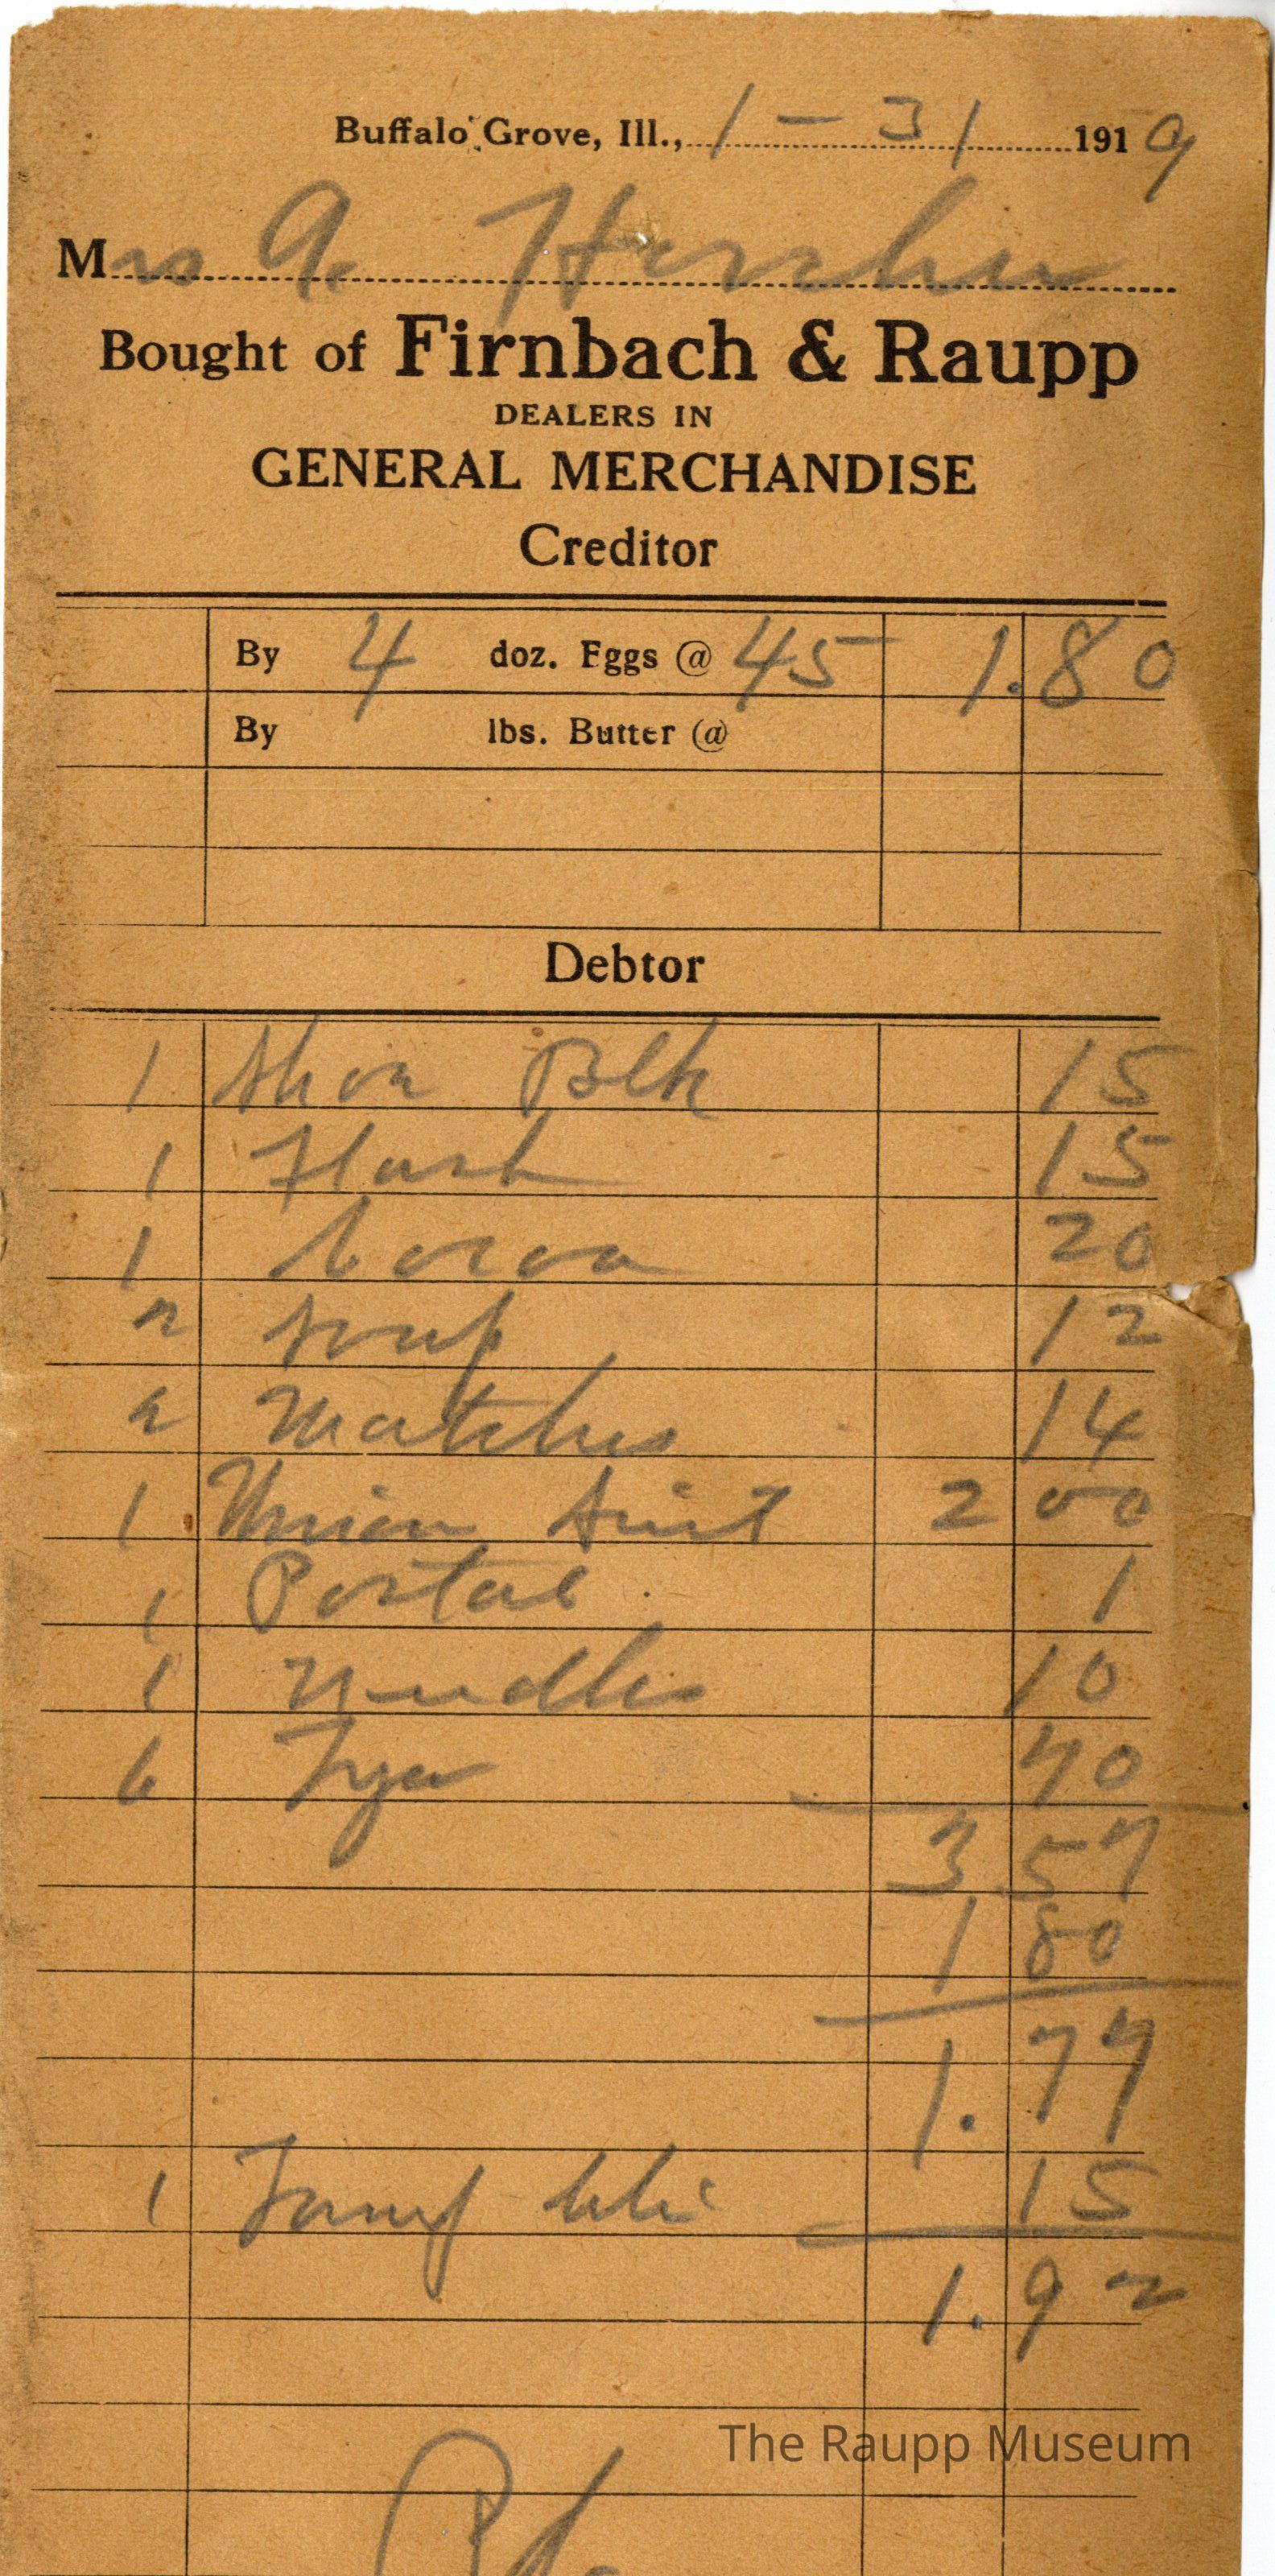 Buffalo Grove, Ill., 1 - 31 1919
Mrs A.
Bought of Firnbach & Raupp
DEALERS IN
GENERAL MERCHANDISE
Creditor
By 4 doz. Eggs @ 45 1.80
By lbs. Butter @
Debtor
1 Shoe Blk 15
1 15
1 Cocoa 20
2 Soap 12
2 Matches 14
1 Union Suit 2 00
1 Postal 1
1 Needles 10
6 70
3 57
1 80
1.77
1 15
1.92
The Raupp Museum